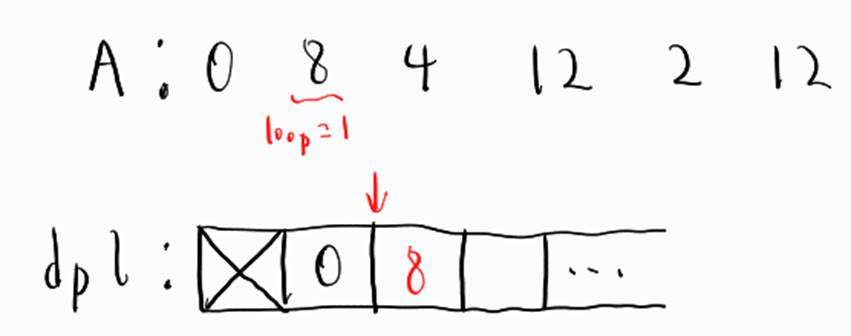 A: 0 8 4 12 2 12
loop=1
dpl: 0 8 ...